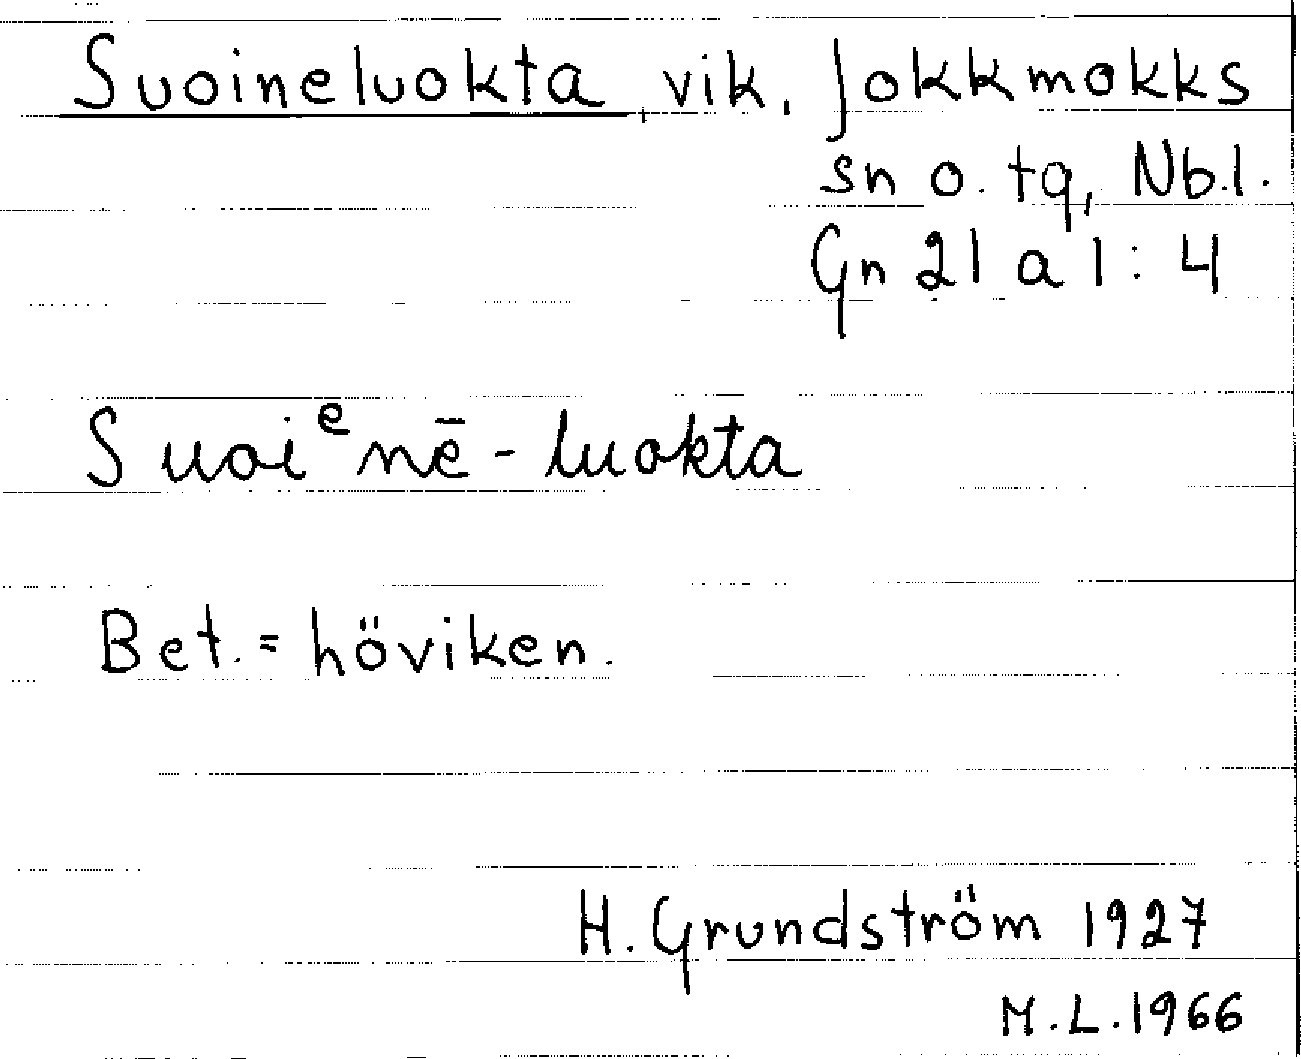 Suoineluokta, vik. Jokkmokks
sn o. tg, Nb.l.
Gn 21 a 1:4
Suoiᵉnē-luokta
Bet. = höviken.
H. Grundström 1927
M.L. 1966